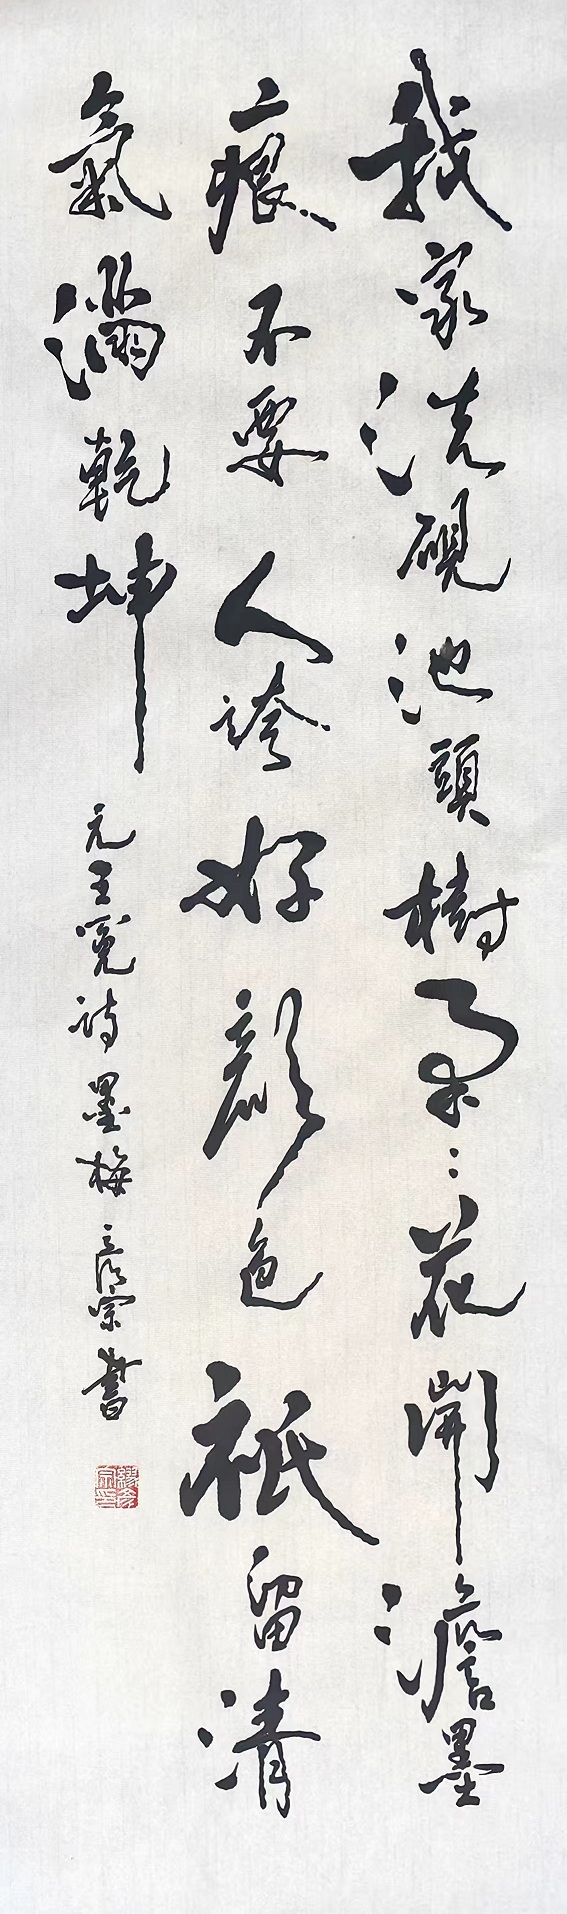 我家洗硯池頭樹朵〻花開澹墨
痕不要人誇好顏色祇留清
氣滿乾坤 元王冕詩墨梅 彥宗書